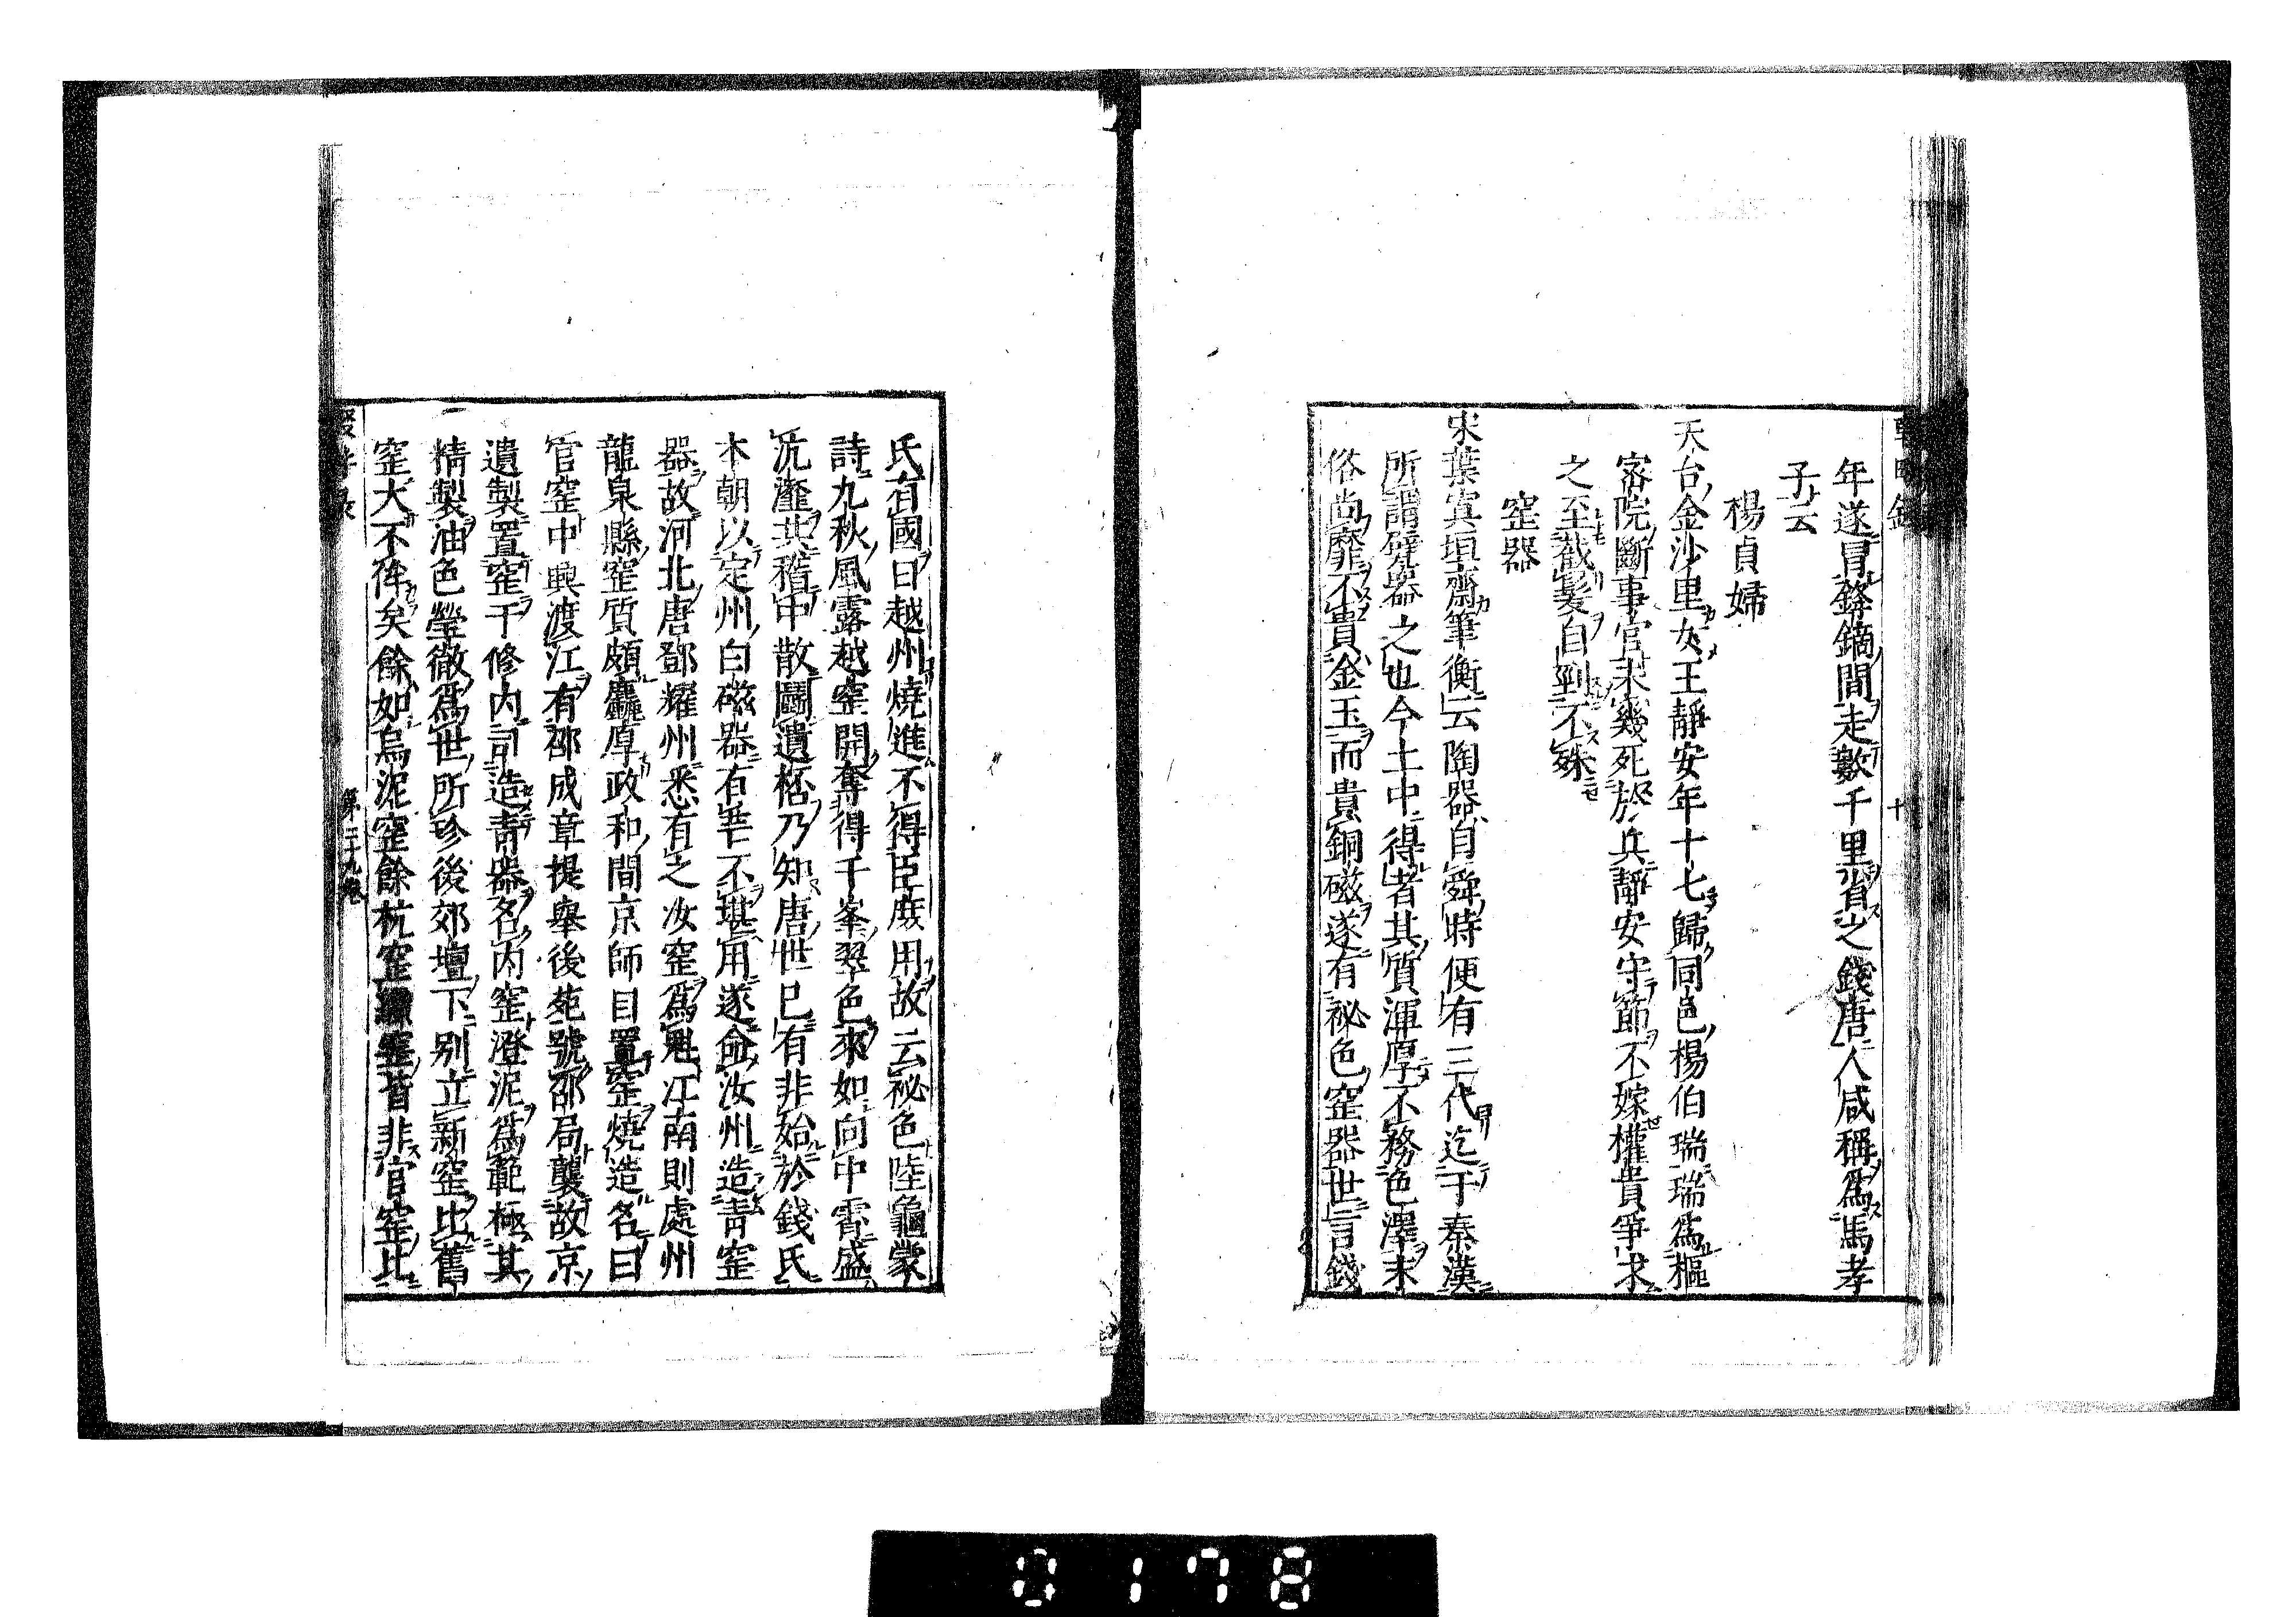 年遂冒鋒鏑間走數千里省之錢唐人咸稱爲馬孝
子云
楊貞婦
天台金沙里女王靜安年十七歸同邑楊伯瑞瑞爲樞
密院斷事官未幾死於兵靜安守節不嫁權貴爭求
之至截髮自剄不殊
窑器
宋葉寘垣齋筆衡云陶器自舜時便有三代迄于秦漢
所謂甓器之也今土中得者其質渾厚不務色澤末
俗尚靡不貴金玉而貴銅磁遂有祕色窑器世言錢
氏有國日越州燒進不得臣庶用故云祕色陸龜蒙
詩九秋風露越窑開奪得千峯翠色來如向中霄盛
沆瀣共稽中散鬪遺桮乃知唐世已有非始於錢氏
本朝以定州白磁器有芒不堪用遂命汝州造青窑
器故河北唐鄧耀州悉有之汝窑爲魁江南則處州
龍泉縣窑質頗麤厚政和間京師自置窑燒造名曰
官窑中興渡江有邵成章提舉後苑號邵局襲故京
遺製置窑于修内司造青器名内窑澄泥爲範極其
精製油色瑩徹爲世所珍後郊壇下别立新窑比舊
窑大不侔矣餘如烏泥窑餘杭窑續窑皆非官窑比
第二十九卷
0178